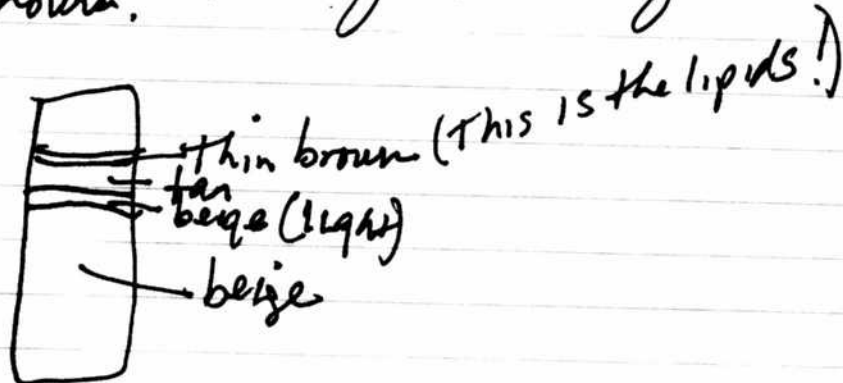 thin brown (This is the lipids!)
tan
beige (light)
beige